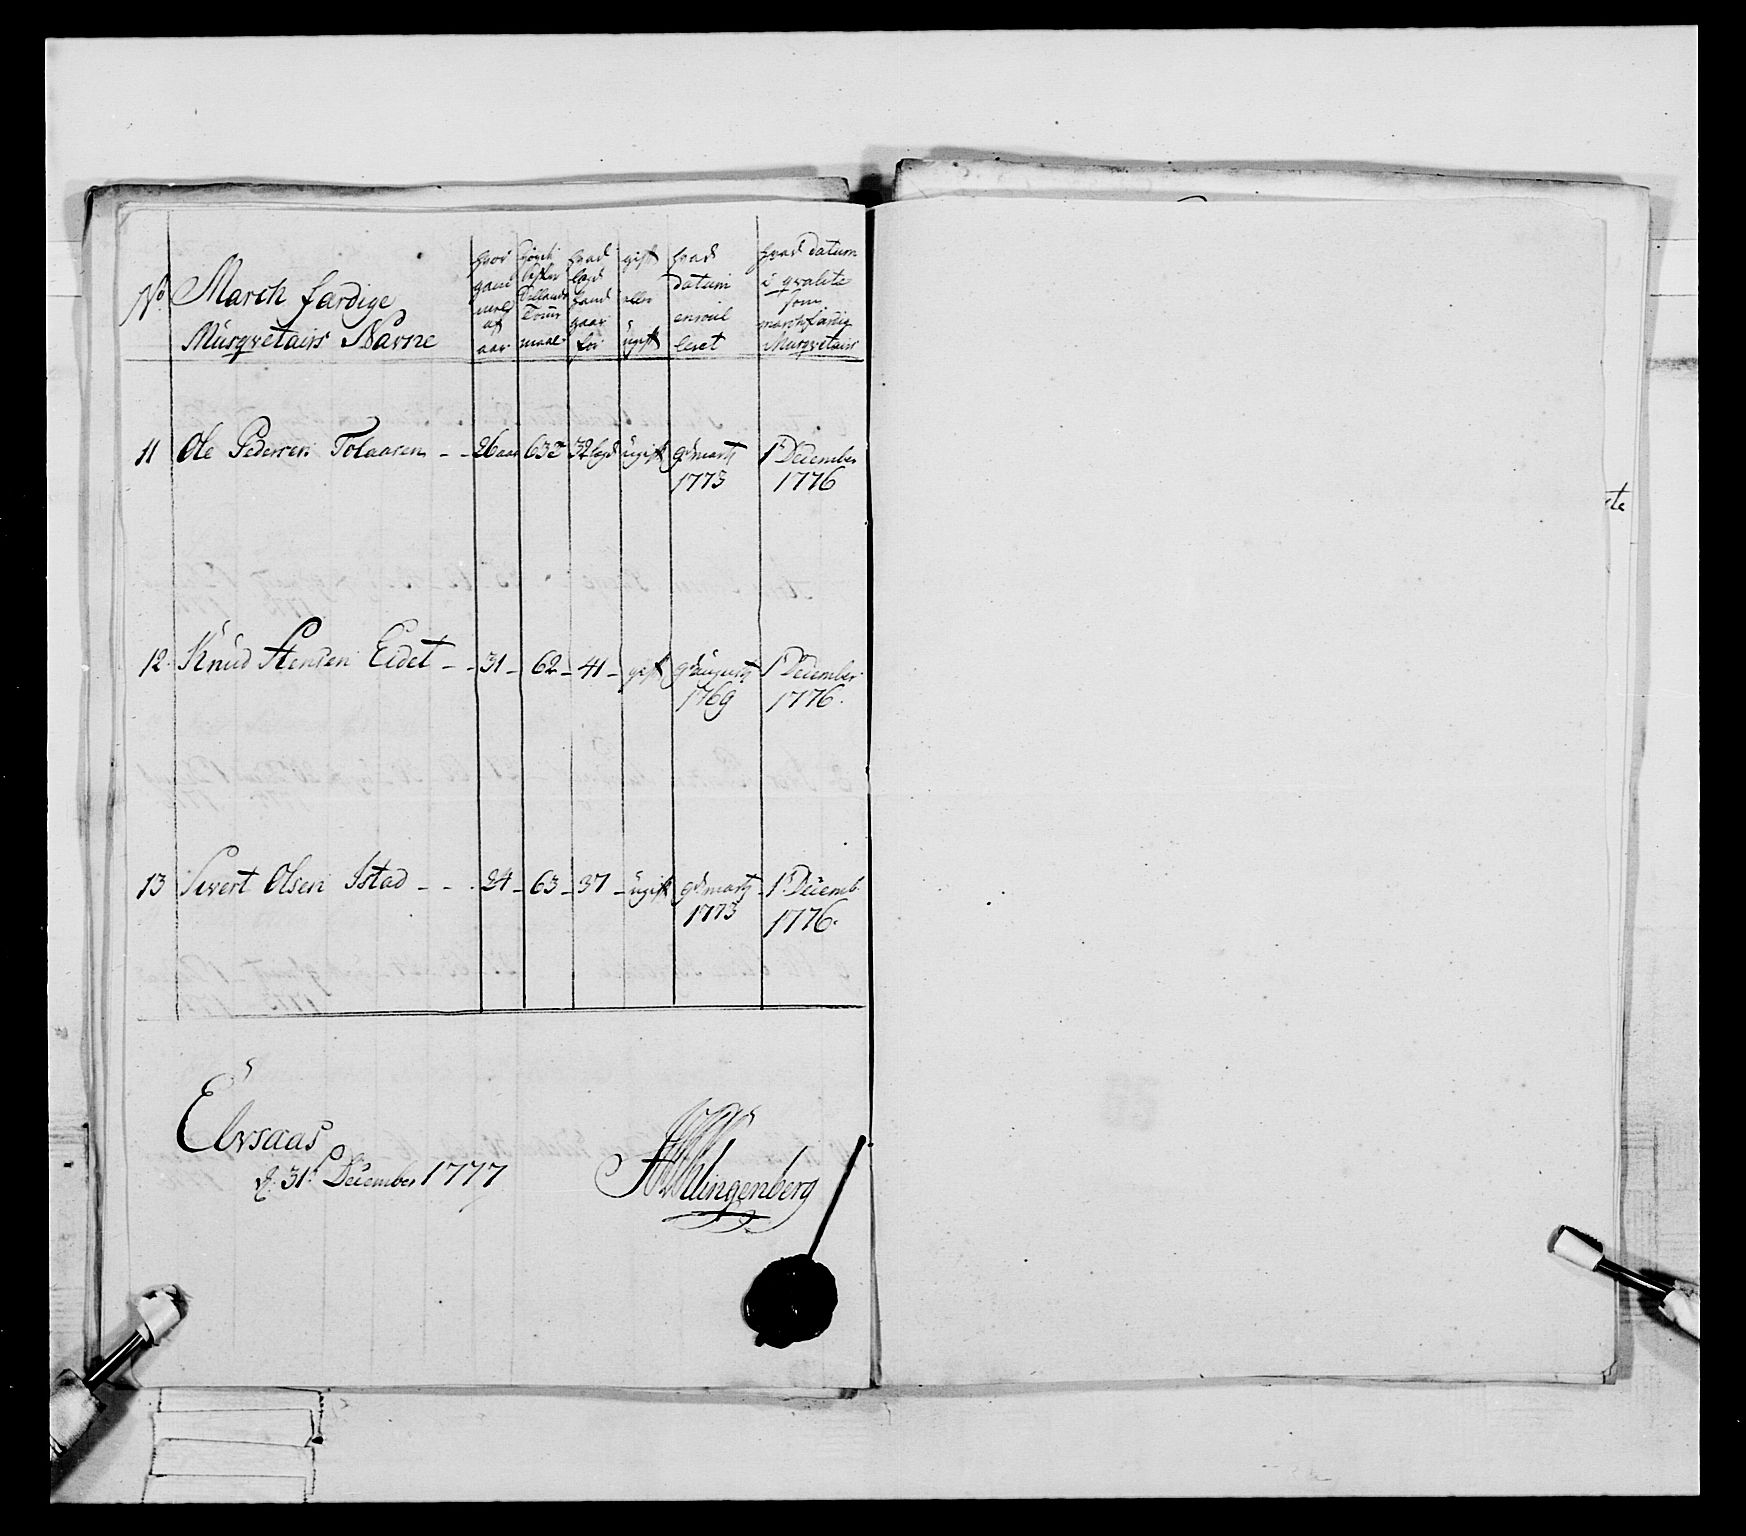 No March færdige Musqvetairs Navne | hvor gam mel af aar | høyde Tom maal | hvad legd hand gaar for | gift eller ugift | hvad datum enroul leret | hvad datum i qvalite som marchfærdig Musqvetair
11 Ole Pedersen Tolaasen - - 26 aar 63 32 legd ugift 9d marty 1773 1t December 1776
12. Knud Stensen Eidet - - 31 - 62 - 41 - gift 9d augusty 1769 1t December 1776.
13 Sivert Olsen Istad - - - 24 - 63 - 37 - ugift 9d marty 1773 1t Decemb. 1776.
Elvsaas
d. 31t December 1777
Klingenberg